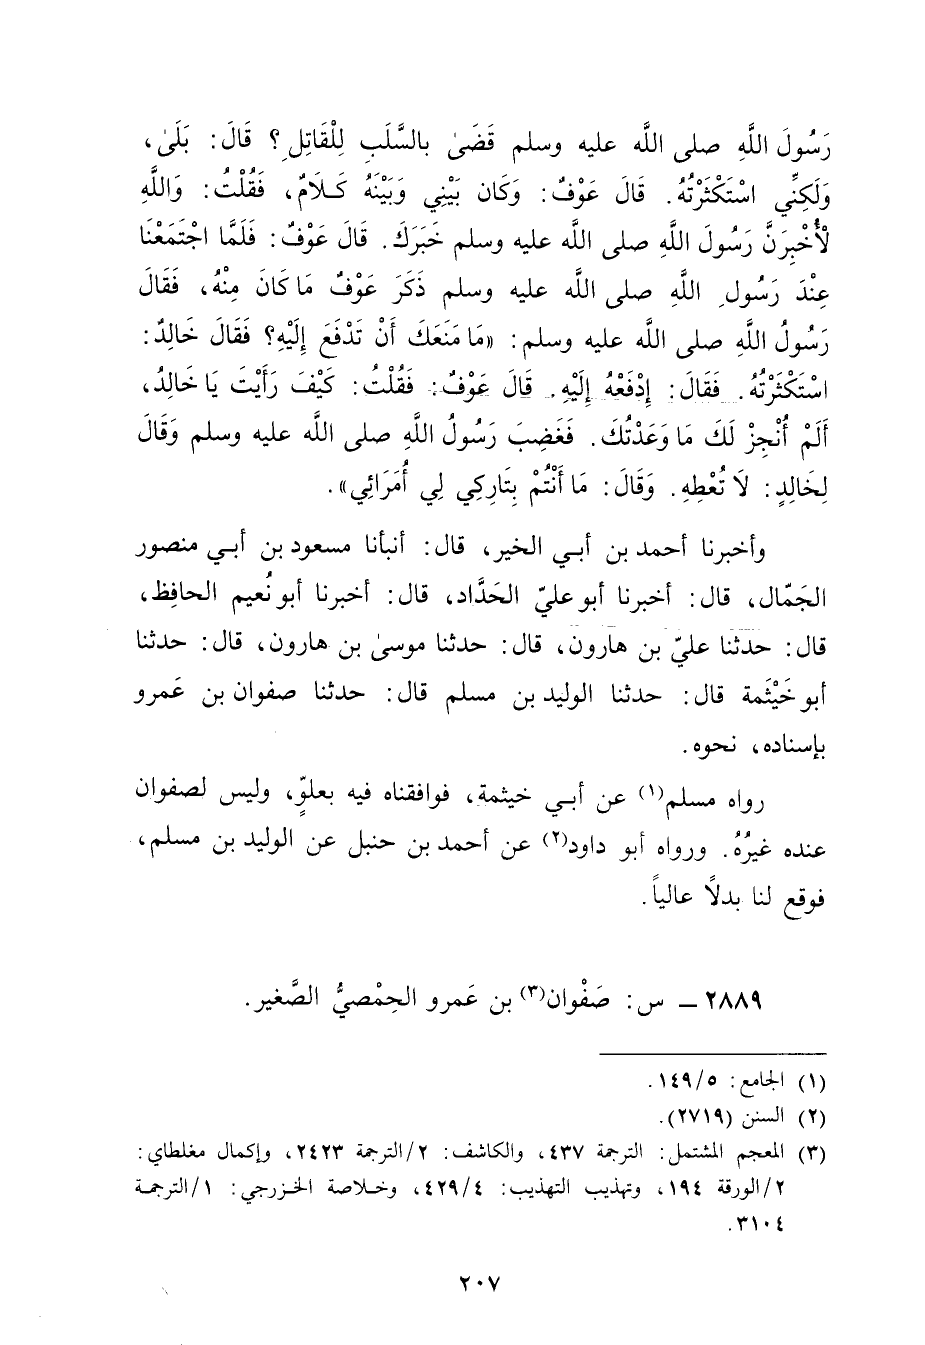 رَسُولَ اللَّهِ صلى الله عليه وسلم قَضَىٰ بالسَّلَبِ لِلْقَاتِلِ؟ قَالَ: بَلَىٰ،
وَلَكِنِّي اسْتَكْثَرْتُهُ. قَالَ عَوْفٌ: وَكَان بَيْنِي وَبَيْنَهُ كَلَامٌ، فَقُلْتُ: وَاللَّهِ
لأُخْبِرَنَّ رَسُولَ اللَّهِ صلى الله عليه وسلم خَبَرَكَ. قَالَ عَوْفٌ: فَلَمَّا اجْتَمَعْنَا
عِنْدَ رَسُولِ اللَّهِ صلى الله عليه وسلم ذَكَرَ عَوْفٌ مَا كَانَ مِنْهُ، فَقَالَ
رَسُولُ اللَّهِ صلى الله عليه وسلم: «مَا مَنَعَكَ أَنْ تَدْفَعَ إِلَيْهِ؟ فَقَالَ خَالِدٌ:
اسْتَكْثَرْتُهُ. فَقَالَ: إِدْفَعْهُ إِلَيْهِ. قَالَ عَوْفٌ: فَقُلْتُ: كَيْفَ رَأَيْتَ يَا خَالِدُ،
أَلَمْ أُنْجِزْ لَكَ مَا وَعَدْتُكَ. فَغَضِبَ رَسُولُ اللَّهِ صلى الله عليه وسلم وَقَالَ
لِخَالِدٍ: لَا تُعْطِهِ. وَقَالَ: مَا أَنْتُمْ بِتَارِكِي لِي أُمَرَائِي».
وأخبرنا أحمد بن أبي الخير، قال: أنبأنا مسعود بن أبي منصور
الجَمّال، قال: أخبرنا أبو عليّ الحَدَّاد، قال: أخبرنا أبو نُعيم الحافِظ،
قال: حدثنا عليّ بن هارون، قال: حدثنا موسىٰ بن هارون، قال: حدثنا
أبو خَيْثَمة قال: حدثنا الوليد بن مسلم قال: حدثنا صفوان بن عَمرو
بإسناده، نحوه.
رواه مسلم(١) عن أبي خيثمة، فوافقناه فيه بعلوٍّ، وليس لصفوان
عنده غيرُهُ. ورواه أبو داود(٢) عن أحمد بن حنبل عن الوليد بن مسلم،
فوقع لنا بدلاً عالياً.
٢٨٨٩ ـ س: صَفْوان(٣) بن عَمرو الحِمْصيُّ الصَّغير.
(١) الجامع: ١٤٩/٥.
(٢) السنن (٢٧١٩).
(٣) المعجم المشتمل: الترجمة ٤٣٧، والكاشف: ٢/الترجمة ٢٤٢٣، وإكمال مغلطاي:
٢/الورقة ١٩٤، وتهذيب التهذيب: ٤٢٩/٤، وخلاصة الخزرجي: ١/الترجمة
٣١٠٤.
٢٠٧